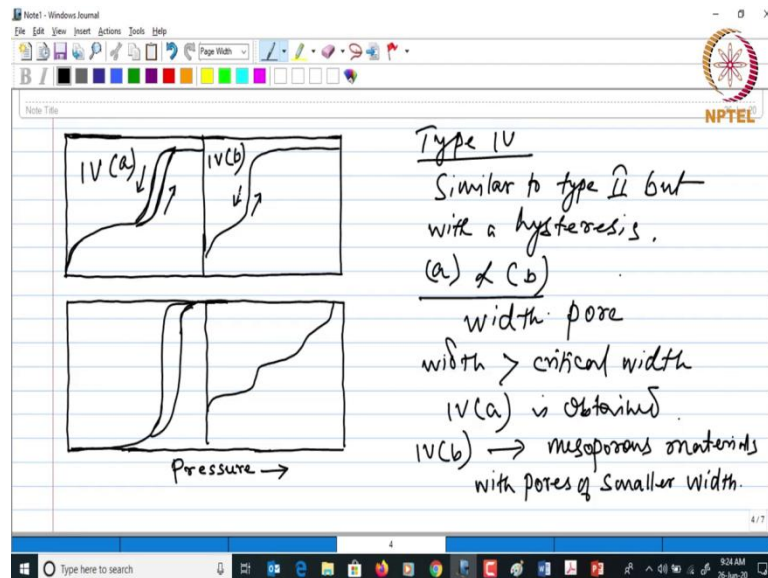 Note1 - Windows Journal
File Edit View Insert Actions Tools Help
Page Width
B I
NPTEL
Note Title
IV (a)
IV(b)
Type IV
Similar to type II but
with a hysteresis.
(a) & (b)
width pore
width > critical width
IV(a) is obtained.
IV(b) → mesoporous materials
with pores of smaller width.
Pressure →
4/7
4
Type here to search
9:24 AM
26-Jun-20